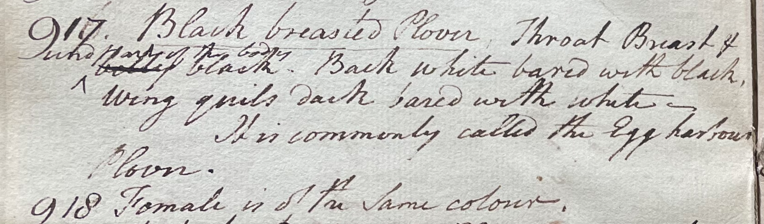 917. Black breasted Plover, Throat Breast &
und parts of the body
belly black. Back white bared with black,
Wing quils dark bared with white
It is commonly called the Egg harbour
Plover.
918 Female is of the Same colour.